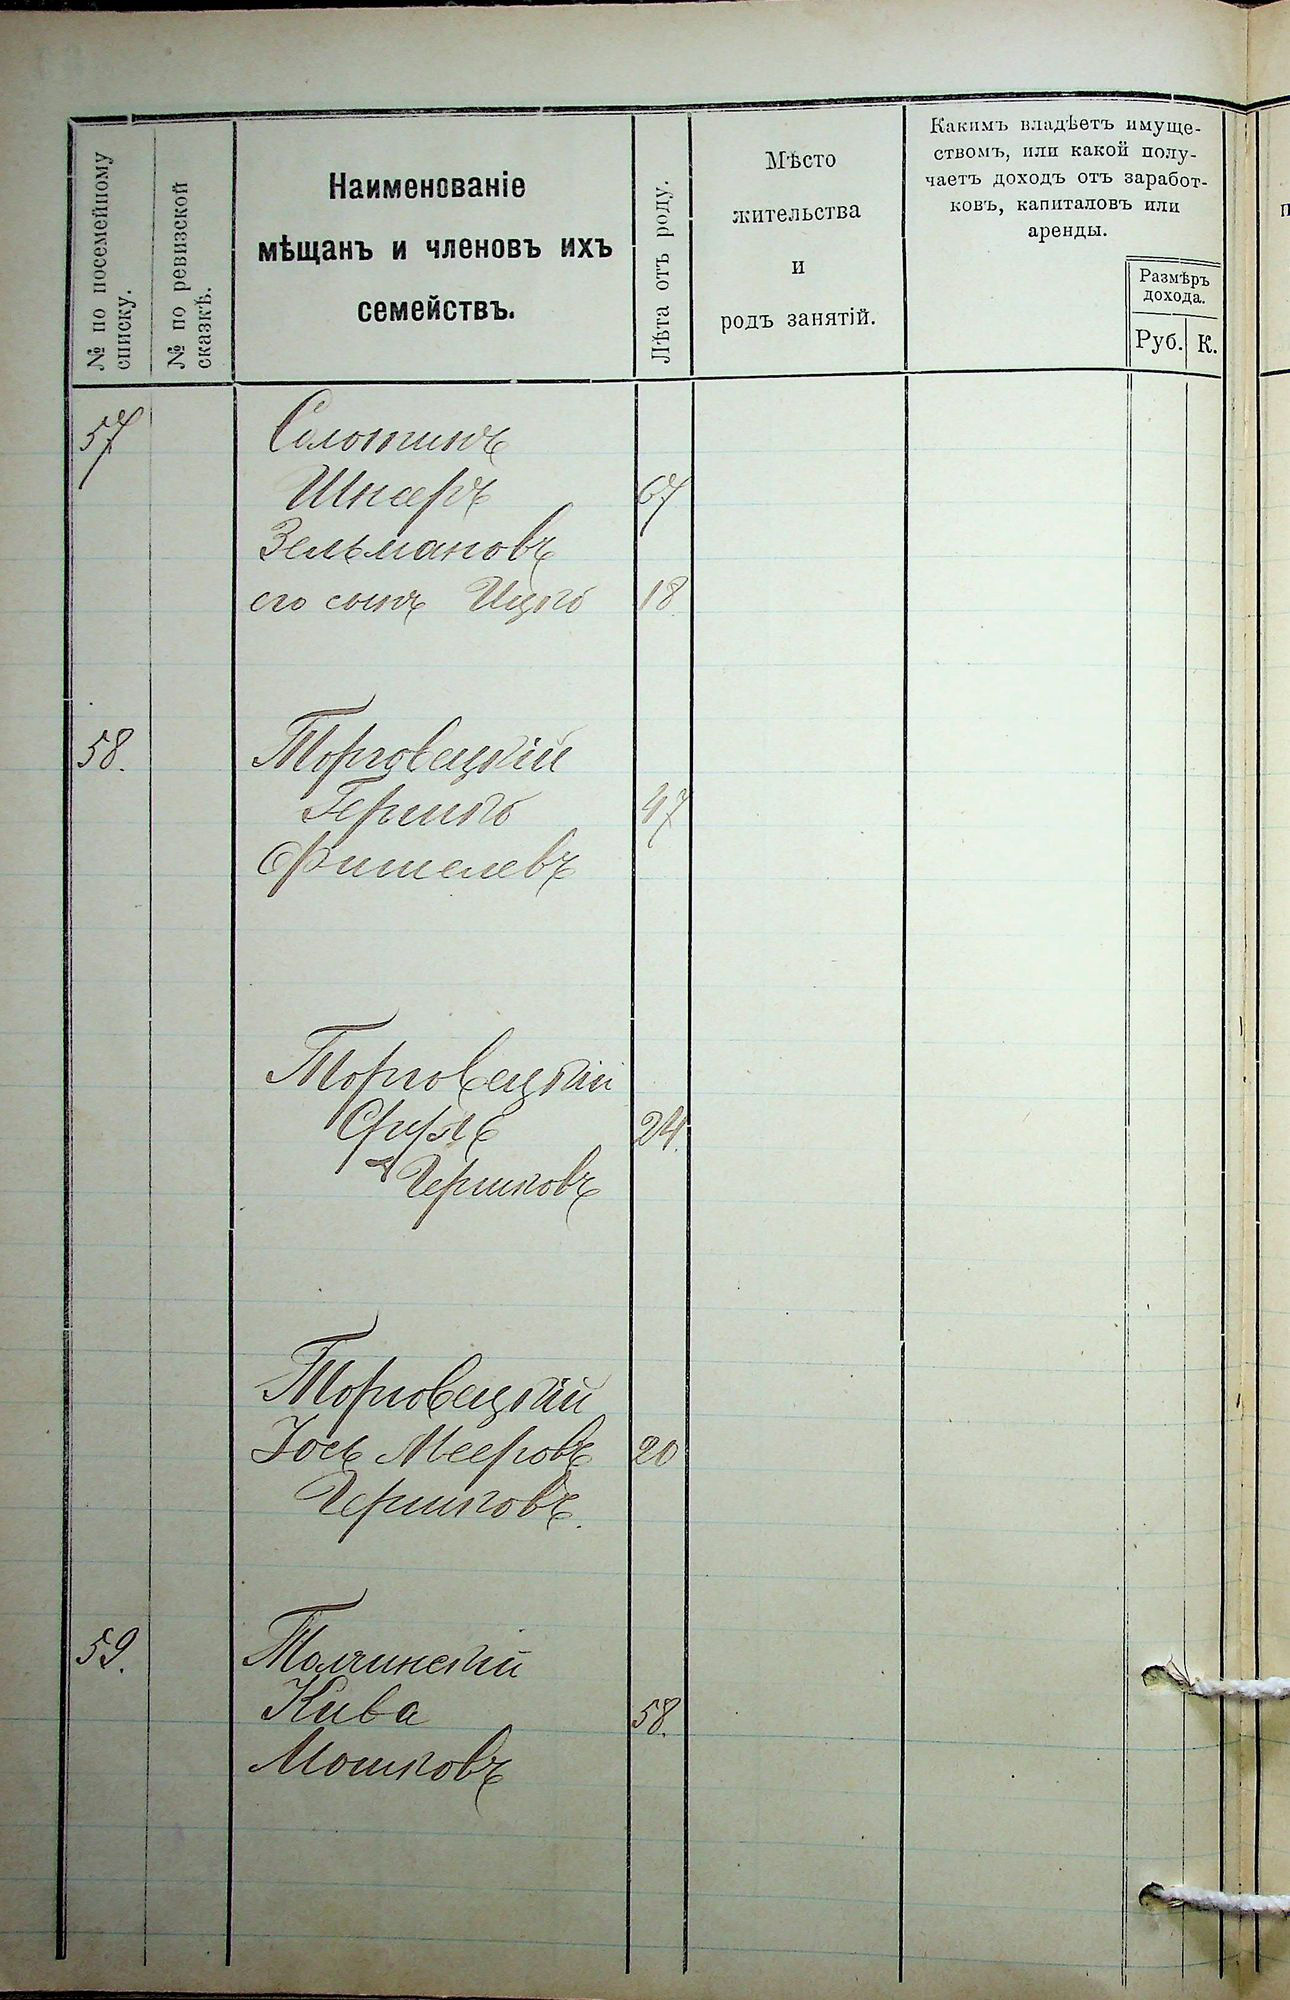 № по посемейному
списку.
№ по ревизской
сказкѣ.
Наименованіе
мѣщанъ и членовъ ихъ
семействъ.
Лѣта отъ роду.
Мѣсто
жительства
и
родъ занятій.
Какимъ владѣетъ имуще-
ствомъ, или какой полу-
чаетъ доходъ отъ заработ-
ковъ, капиталовъ или
аренды.
Размѣръ
дохода.
Руб. К.
57 Соломинъ
Шнеръ 67
Зельмановъ
его сынъ Ицко 18
58. Торговецкій
Гершко 47
Фишелевъ
Торговецкій
24.
Гершковъ
Торговецкій
Іось Мееровъ 20
Гершковъ.
59. Толчинскій
Кива 58.
Мошковъ